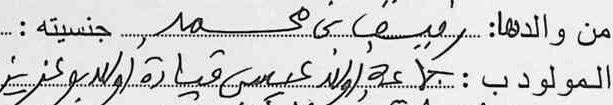 من والدها: رفيق بن محمد جنسيته :
المولود ب : جماعة اولاد عيسى قيادة اولاد بوعزيز